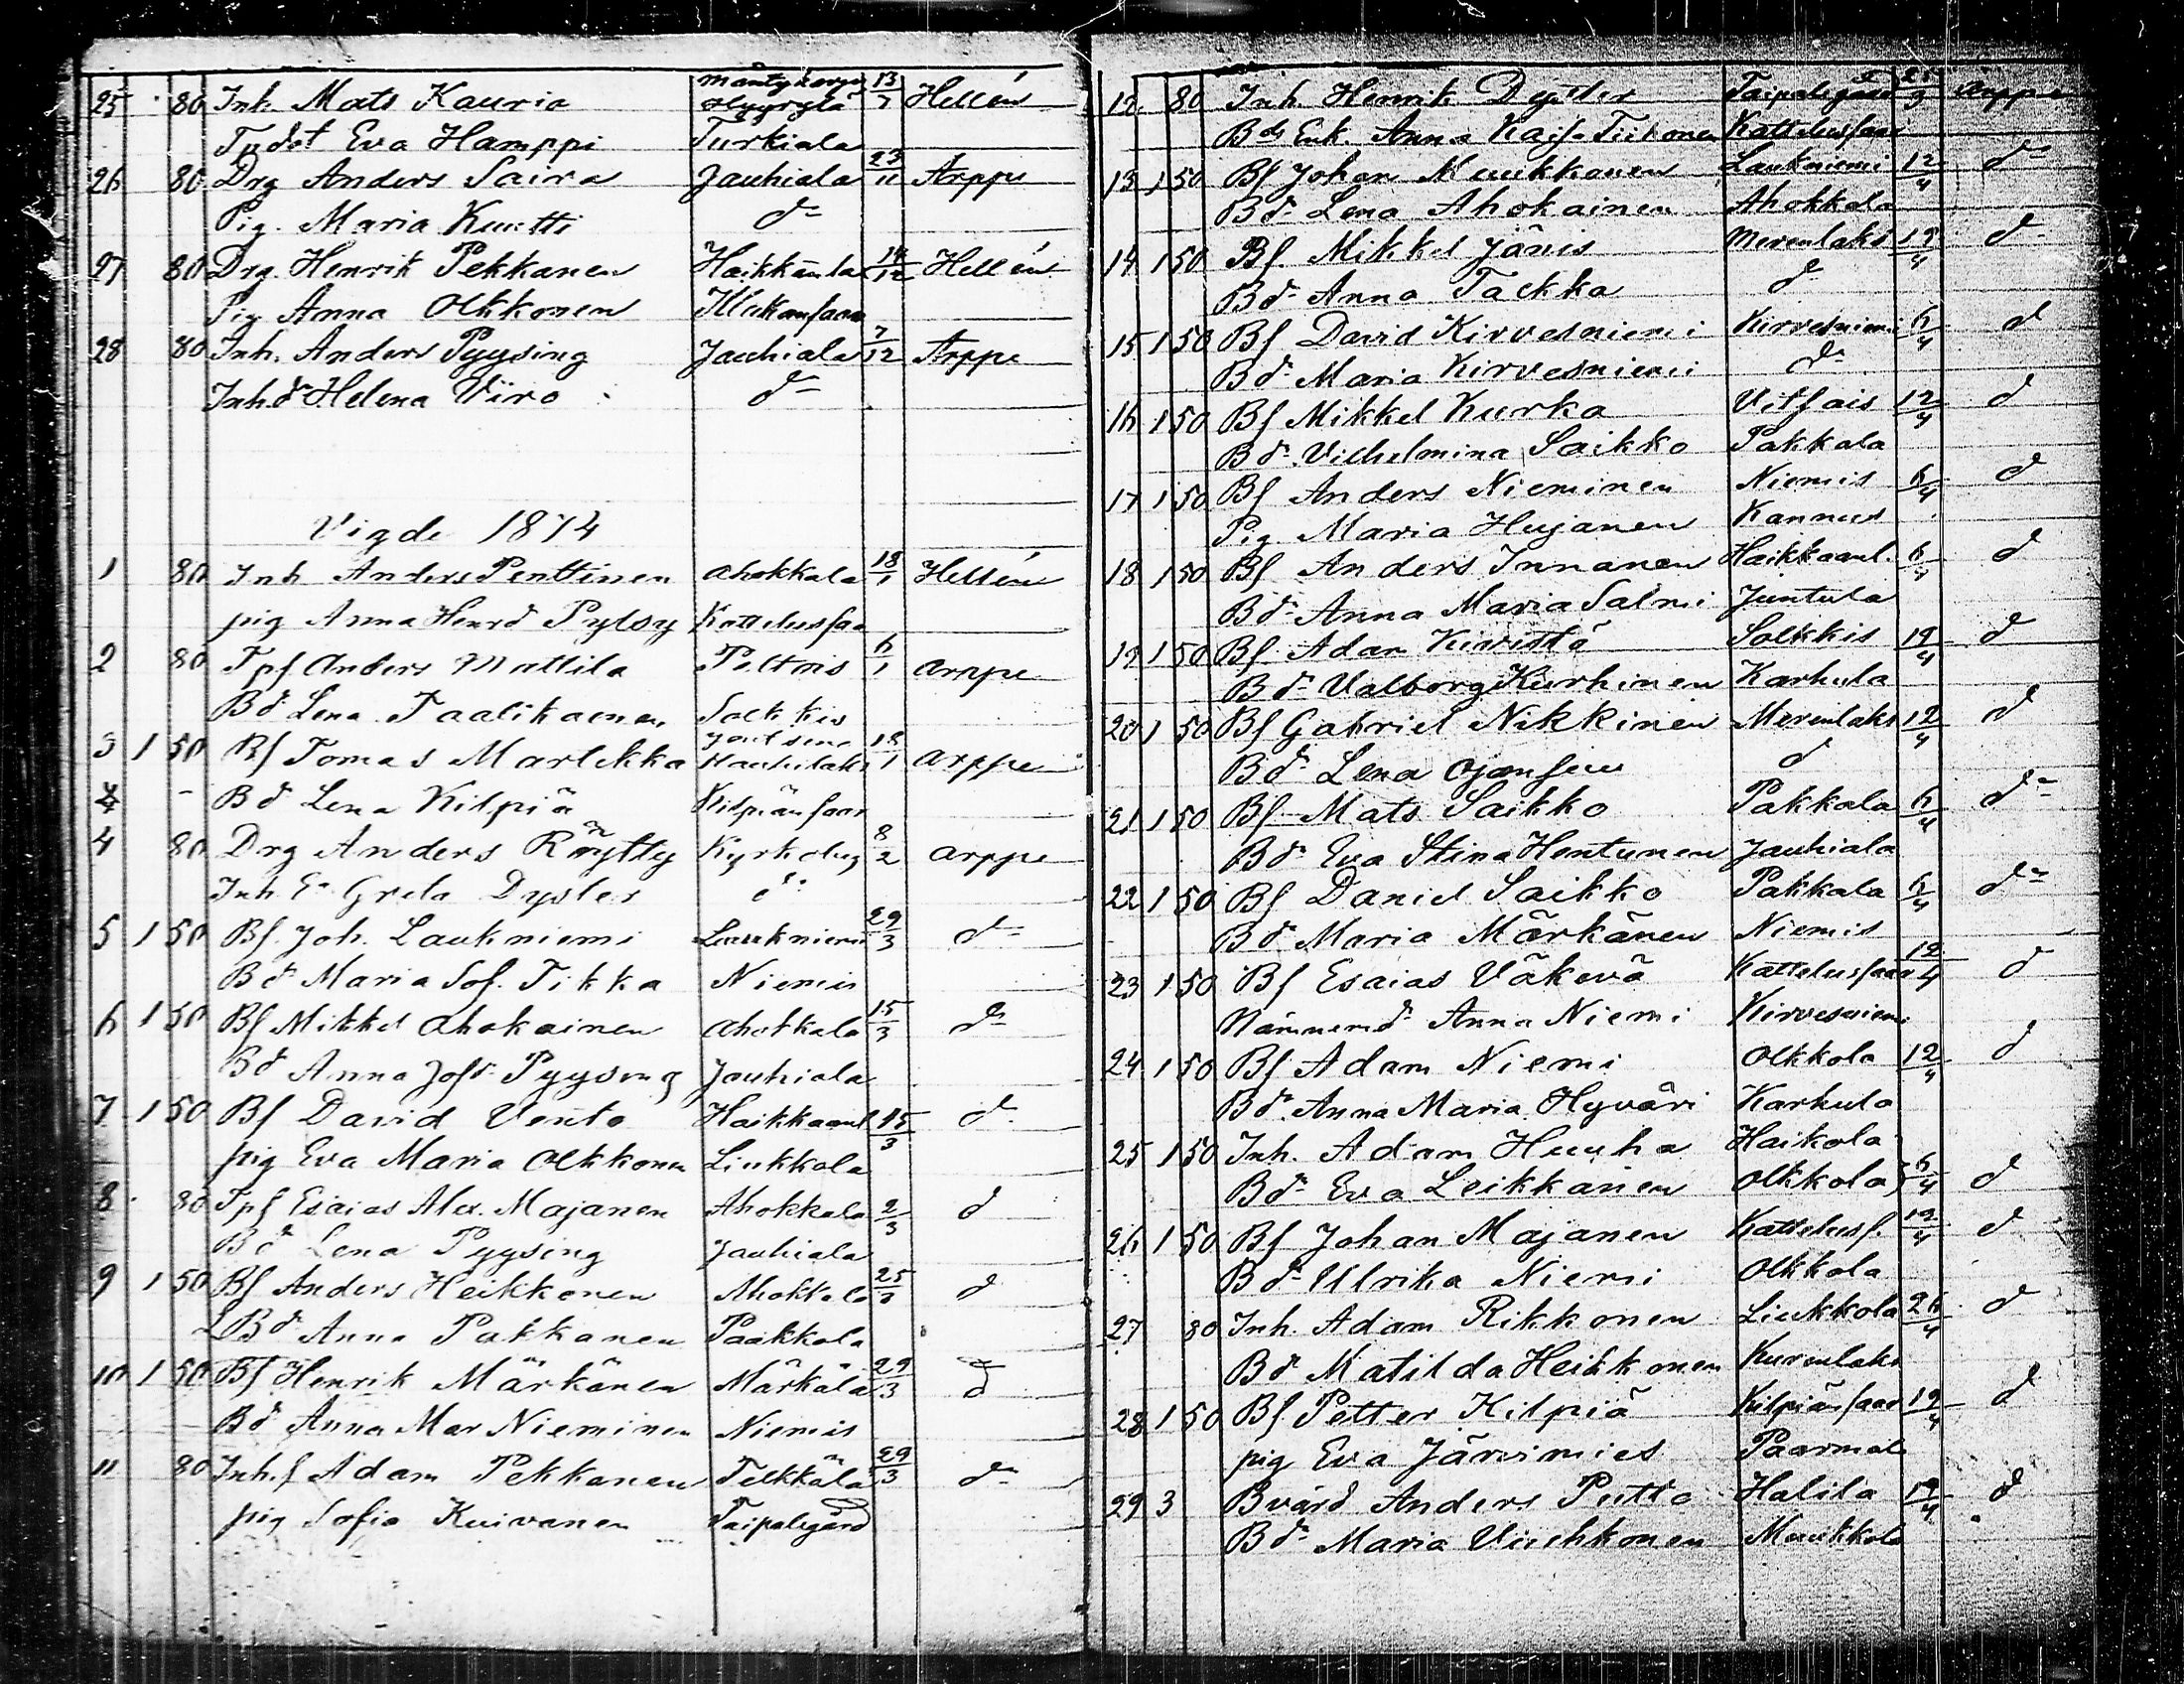 25 80 Inh. Mats Kauria Hyyrylä 13/7 Hellén
Eva Hamppi Turkiala
26 80 Drg Anders Saira Jauhiala 23/11 Arppe
Pig. Maria Kuutti d:o
27 80 Drg. Henrik Pekkanen Haikkanla 14/12 Hellén
Pig Anna Olkkonen
28 80 Inh. Anders Pyysing Jauhiala 7/12 Arppe
Inh.dr Helena Viro d:o
Vigde 1874
1 80 Inh Anders Penttinen Ahokkala 18/1 Hellén
pig Anna Henrd Pylsy Kattelussaa
2 80 Tpf Anders Mattila Peltois 6/1 Arppe
Bd Lena Taalikainen Solkkis
3 1 50 Bf Tomas Martikka 18/1 Arppe
Bd Lena Kilpiä Kilpiänsaar
4 80 Drg Anders Röytty Kyrkoby 8/2 Arppe
Inh. E. Greta Dyster d:o
5 1 50 Bf. Joh. Laukniemi Laukniemi 29/3 d:o
Bd Maria Sof. Tikka Niemis
6 1 50 Bf Mikkel Ahokainen Ahokkala 15/3 d:o
Bd Anna Josd. Pyysing Jauhiala
7 1 50 Bf David Vento Haikkaanl 15/3 d:o
pig Eva Maria Olkkonen Liukkola
8 80 Tpf Esaias Alex. Majanen Ahokkala 2/3 d
Bd Lena Pyysing Jauhiala
9 1 50 Bf Anders Heikkonen Ahokkala 25/3 d
Bd Anna Pakkanen Paakkola
10 1 50 Bf Henrik Märkänen Märkälä 29/3 d
Bd Anna Mar Nieminen Niemis
11 80 Inh.f Adam Pekkanen Telkkälä 29/3 d:o
pig Sofia Kuivanen Taipalegård
12 80 Inh. Henrik Dyster Taipalegård 25/3 Arppe
Bds Enk. Anna Kaisa Tiikonen Kattelussaar
13 1 50 Bf Johan Muukkonen Laukniemi 12/4 d:o
Bd Lena Ahokainen Ahokkala
14 1 50 Bf. Mikkel Jänis Merenlaks 12/4 d:o
Bd Anna Tackka d
15 1 50 Bf David Kirvesniemi Kirvesniemi 6/4 d
Bd Maria Kirvesniemi d:o
16 1 50 Bf Mikkel Kurka Vitsais 12/4 d
Bd Vilhelmina Saikko Pakkala
17 1 50 Bf Anders Nieminen Niemis 6/4 d
Pig. Maria Hujanen Kannus
18 1 50 Bf Anders Innanen Haikkaanl. 6/4 d
Bd Anna Maria Salmi Juntula
19 1 50 Bf. Adam Kiuristö Solkkis 12/4 d
Bd Valborg Kurhinen Karhula
20 1 50 Bf Gabriel Nikkinen Merenlaks 12/4 d
Bd Lena Ojansuu d
21 1 50 Bf Mats Saikko Pakkala 6/4 d:o
Bd Eva Stina Hentunen Jauhiala
22 1 50 Bf Daniel Saikko Pakkala 6/4 d:o
Bd Maria Märkänen Niemis
23 1 50 Bf Esaias Väkevä Kattelussaar 12/4 d
Nämnemd Anna Niemi Kirvesniemi
24 1 50 Bf Adam Niemi Olkkola 12/4 d
Bd Anna Maria Hyväri Karhula
25 1 50 Inh. Adam Huuha Haikola
Bd Eva Leikkanen Olkkola 6/4 d
26 1 50 Bf Johan Majanen Kattelusf. 12/4 d
Bd Ulrika Niemi Olkkola
27 80 Inh. Adam Rikkonen Liukkola 26/4 d
Bd Matilda Heikkonen Kurenlaks
28 1 50 Bf. Petter Kilpiä Kilpiänsaar 19/4 d
pig Eva Järvimies Paarmal
29 3 Bvärd Anders Putto Halila 19/4 d
Bd Maria Viuhkonen Muukkola